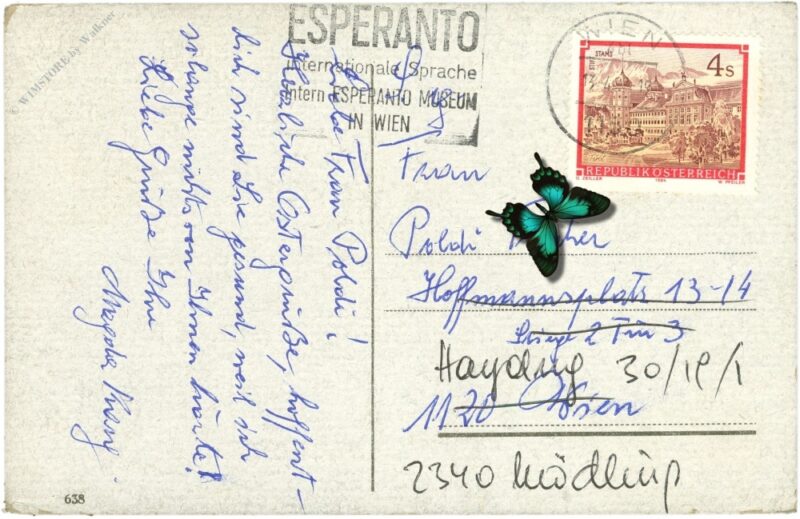 ESPERANTO
Internationale Sprache
intern. ESPERANTO MUSEUM
IN WIEN
WIEN
STIFT STAMS
4s
Tirol
REPUBLIK ÖSTERREICH
O. ZEILLER 1984 W. PFEILER
Liebe Frau Poldi!
Herzliche Ostergrüße, hoffent-
lich sind Sie gesund, weil ich
solange nichts von Ihnen hörte!
Liebe Grüße Ihre
Magda
Frau
Poldi
Hoffmannsplatz 13-14
Stiege 2 Tür 3
Haydng 30/19/1
1120 Wien
2340 Mödling
638
© WIMSTORE by Walkner